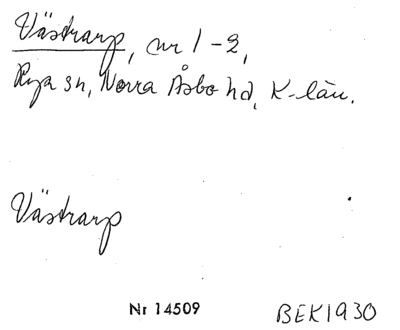 Västrarp, nr 1-2,
Rya sn, Norra Åsbo hd, K-län.
Västrarp
Nr 14509 BEK1930